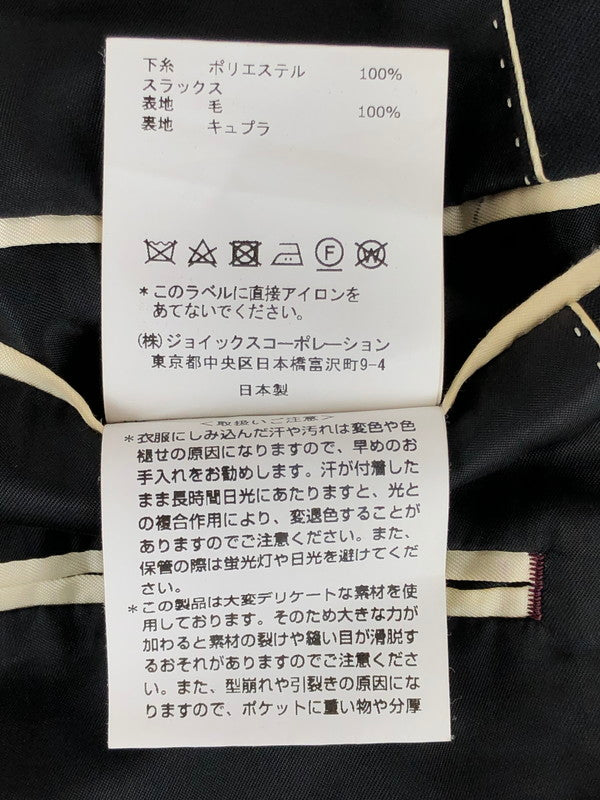 下糸 ポリエステル 100%
スラックス
表地 毛 100%
裏地 キュプラ
F W
*このラベルに直接アイロンを
あてないでください。
(株)ジョイックスコーポレーション
東京都中央区日本橋富沢町9-4
日本製
<取扱いご注意>
*衣服にしみ込んだ汗や汚れは変色や色
褪せの原因になりますので、早めのお
手入れをお勧めします。汗が付着した
まま長時間日光にあたりますと、光と
の複合作用により、変退色することが
ありますのでご注意ください。また、
保管の際は蛍光灯や日光を避けてくだ
さい。
*この製品は大変デリケートな素材を使
用しております。そのため大きな力が
加わると素材の裂けや縫い目が滑脱す
るおそれがありますのでご注意くださ
い。また、型崩れや引裂きの原因にな
りますので、ポケットに重い物や分厚